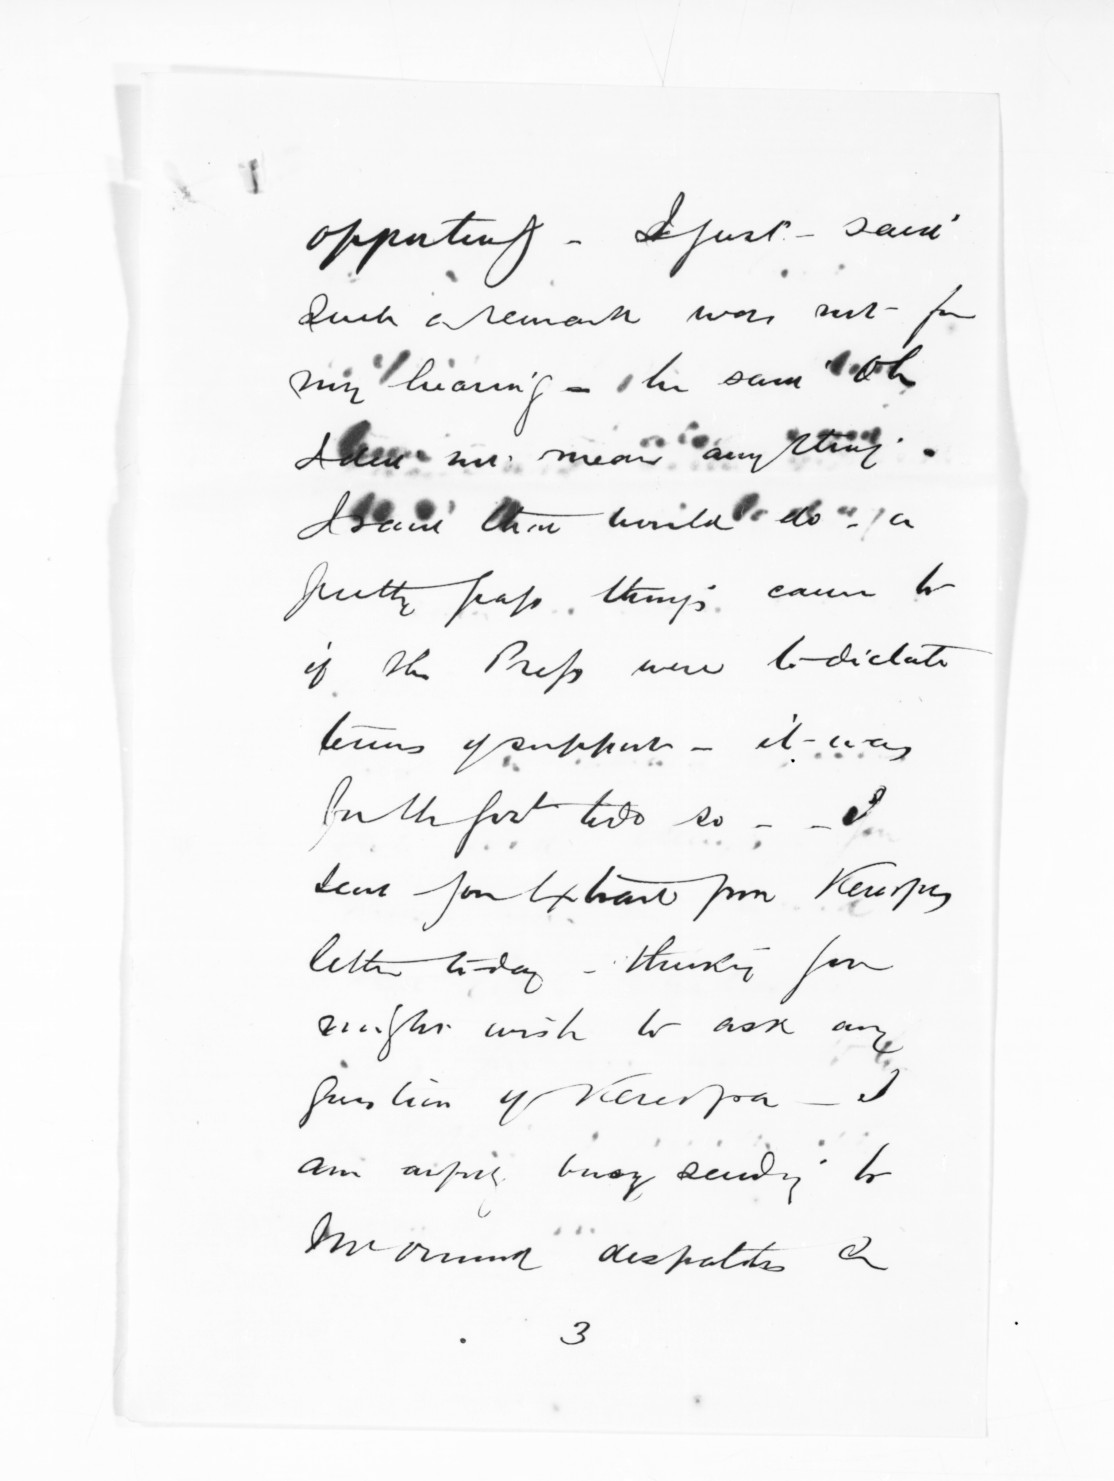 opportunity - I just - said
Such a remark was not - for
my hearing - he said 'Oh
I did not mean anything'.
I said that would do - a
pretty pass things came to
if the Press were to dictate
terms of support - it was
for the Govt to do so - - I
sent you Extract from Kereopas
letter today - thinking you
might wish to ask any
question of Kereopa - I
am busy sending to
Mr Ormond despatches &
3